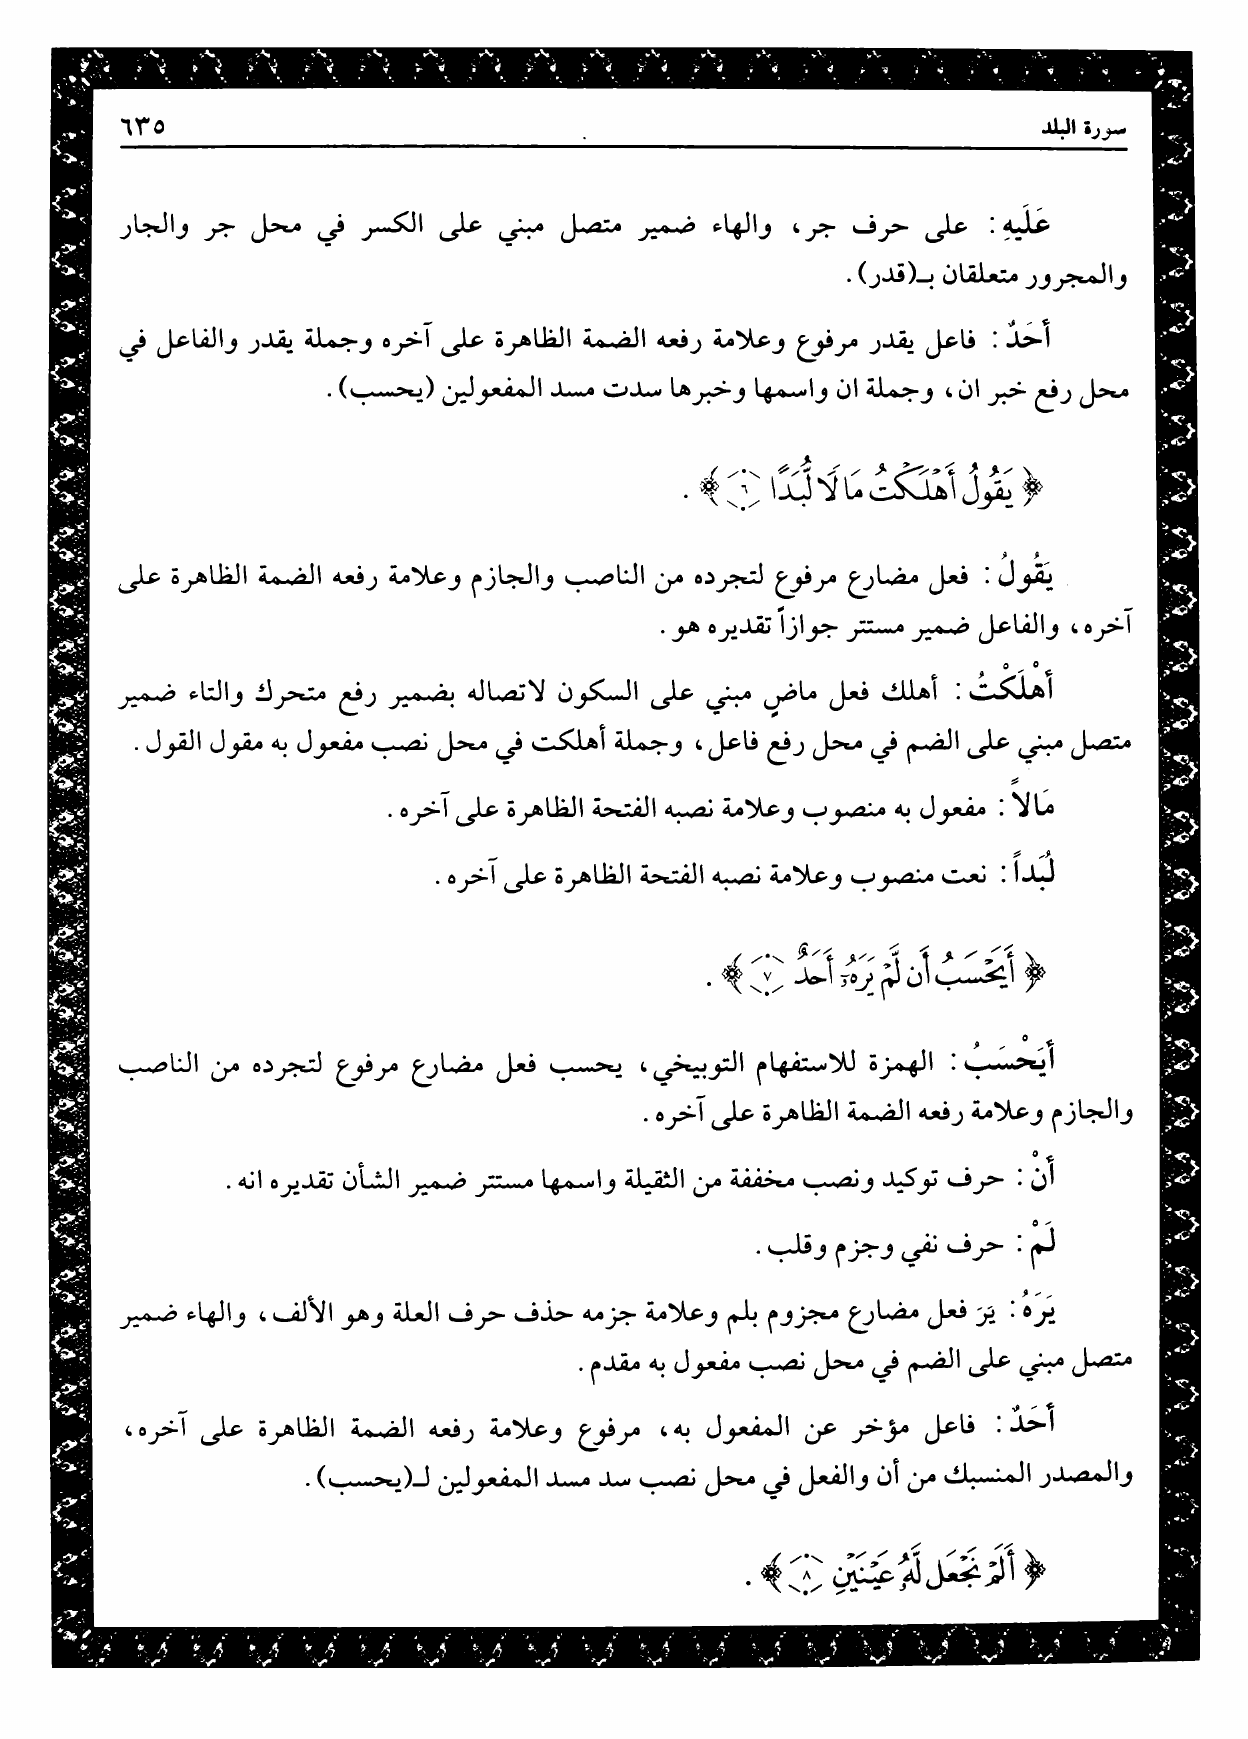 سورة البلد ٦٣٥
عَلَيهِ : على حرف جر، والهاء ضمير متصل مبني على الكسر في محل جر والجار
والمجرور متعلقان بـ(قدر).
أَحَدٌ : فاعل يقدر مرفوع وعلامة رفعه الضمة الظاهرة على آخره وجملة يقدر والفاعل في
محل رفع خبر ان، وجملة ان واسمها وخبرها سدت مسد المفعولين (يحسب).
﴿ يَقُولُ أَهْلَكْتُ مَالًا لُّبَدًا ٦ ﴾ .
يَقُولُ : فعل مضارع مرفوع لتجرده من الناصب والجازم وعلامة رفعه الضمة الظاهرة على
آخره، والفاعل ضمير مستتر جوازاً تقديره هو .
أَهْلَكْتُ : أهلك فعل ماضٍ مبني على السكون لاتصاله بضمير رفع متحرك والتاء ضمير
متصل مبني على الضم في محل رفع فاعل، وجملة أهلكت في محل نصب مفعول به مقول القول .
مَالاً : مفعول به منصوب وعلامة نصبه الفتحة الظاهرة على آخره .
لُبَداً : نعت منصوب وعلامة نصبه الفتحة الظاهرة على آخره .
﴿ أَيَحْسَبُ أَن لَّمْ يَرَهُۥٓ أَحَدٌ ٧ ﴾ .
أَيَحْسَبُ : الهمزة للاستفهام التوبيخي، يحسب فعل مضارع مرفوع لتجرده من الناصب
والجازم وعلامة رفعه الضمة الظاهرة على آخره .
أَنْ : حرف توكيد ونصب مخففة من الثقيلة واسمها مستتر ضمير الشأن تقديره انه .
لَمْ : حرف نفي وجزم وقلب .
يَرَهُ : يَرَ فعل مضارع مجزوم بلم وعلامة جزمه حذف حرف العلة وهو الألف، والهاء ضمير
متصل مبني على الضم في محل نصب مفعول به مقدم .
أَحَدٌ : فاعل مؤخر عن المفعول به، مرفوع وعلامة رفعه الضمة الظاهرة على آخره،
والمصدر المنسبك من أن والفعل في محل نصب سد مسد المفعولين لـ(يحسب).
﴿ أَلَمْ نَجْعَل لَّهُۥ عَيْنَيْنِ ٨ ﴾ .